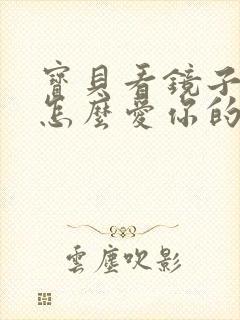 寶貝看鏡子
怎麼愛你的
雲塵吹影